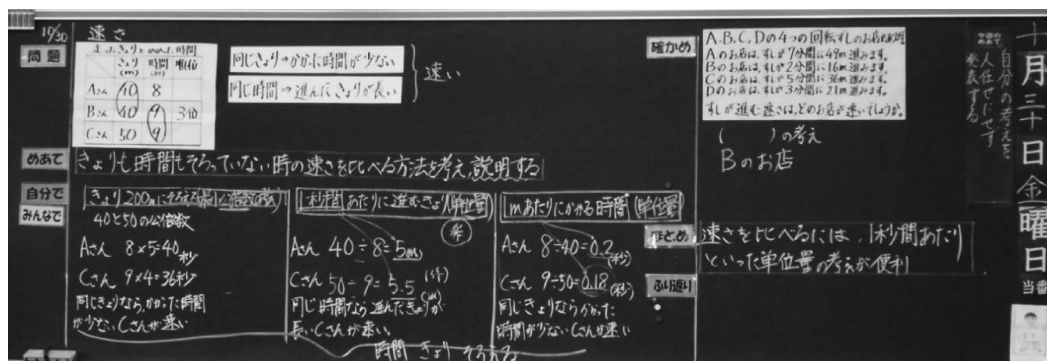 10/30
速さ
問題
走ったきょりとかかった時間
きょり(m) 時間(秒) 順位
Aさん 40 8
Bさん 40 9 3位
Cさん 50 9
同じきょり→かかった時間が少ない
同じ時間→進んだきょりが長い
速い
めあて
きょりも時間もそろっていない時の速さを比べる方法を考え、説明する
自分で
みんなで
きょり200mにそろえる
40と50の公倍数
Aさん 8×5=40秒
Cさん 9×4=36秒
同じきょりなら、かかった時間
が少ないCさんが速い
1秒間あたりに進むきょり 単位量
Aさん 40÷8=5m
Cさん 50÷9=5.5
(m)
同じ時間なら進んだきょりが
長いCさんが速い。
1mあたりにかかる時間 単位量
Aさん 8÷40=0.2(秒)
Cさん 9÷50=0.18(秒)
同じきょりならかかった
時間が少ないCさんが速い
時間 きょり そろえる
確かめ
A,B,C,Dの4つの回転すしのお店
Aのお店は、すしが7分間に49m進みます。
Bのお店は、すしが2分間に16m進みます。
Cのお店は、すしが5分間に36m進みます。
Dのお店は、すしが3分間に21m進みます。
すしが進む速さは、どのお店が速いでしょうか。
( )の考え
Bのお店
まとめ
速さを比べるには、1秒間あたり
といった単位量の考えが便利
ふり返り
今週のめあて
自分の考えを
人任せにせず
発表する
十月三十日金曜日
当番